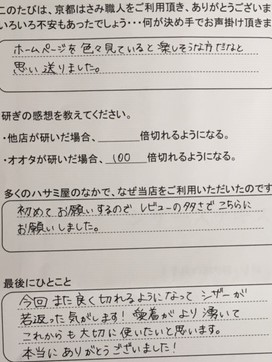 このたびは、京都はさみ職人をご利用頂き、ありがとうございま
いろいろ不安もあったでしょう・・・何が決め手でお声掛け頂きま
ホームページを色々見ていると楽しそうな方だなと
思い送りました。
研ぎの感想を教えてください。
・他店が研いだ場合、 倍切れるようになる。
・オオタが研いだ場合、 100 倍切れるようになる。
多くのハサミ屋のなかで、なぜ当店をご利用いただいたのです
初めてお願いするので レビューの多さでこちらに
お願いしました。
最後にひとこと
今回 また良く切れるようになって シザーが
若返った気がします! 愛着が より湧いて
これからも 大切に使いたいと思います。
本当に ありがとうございました!